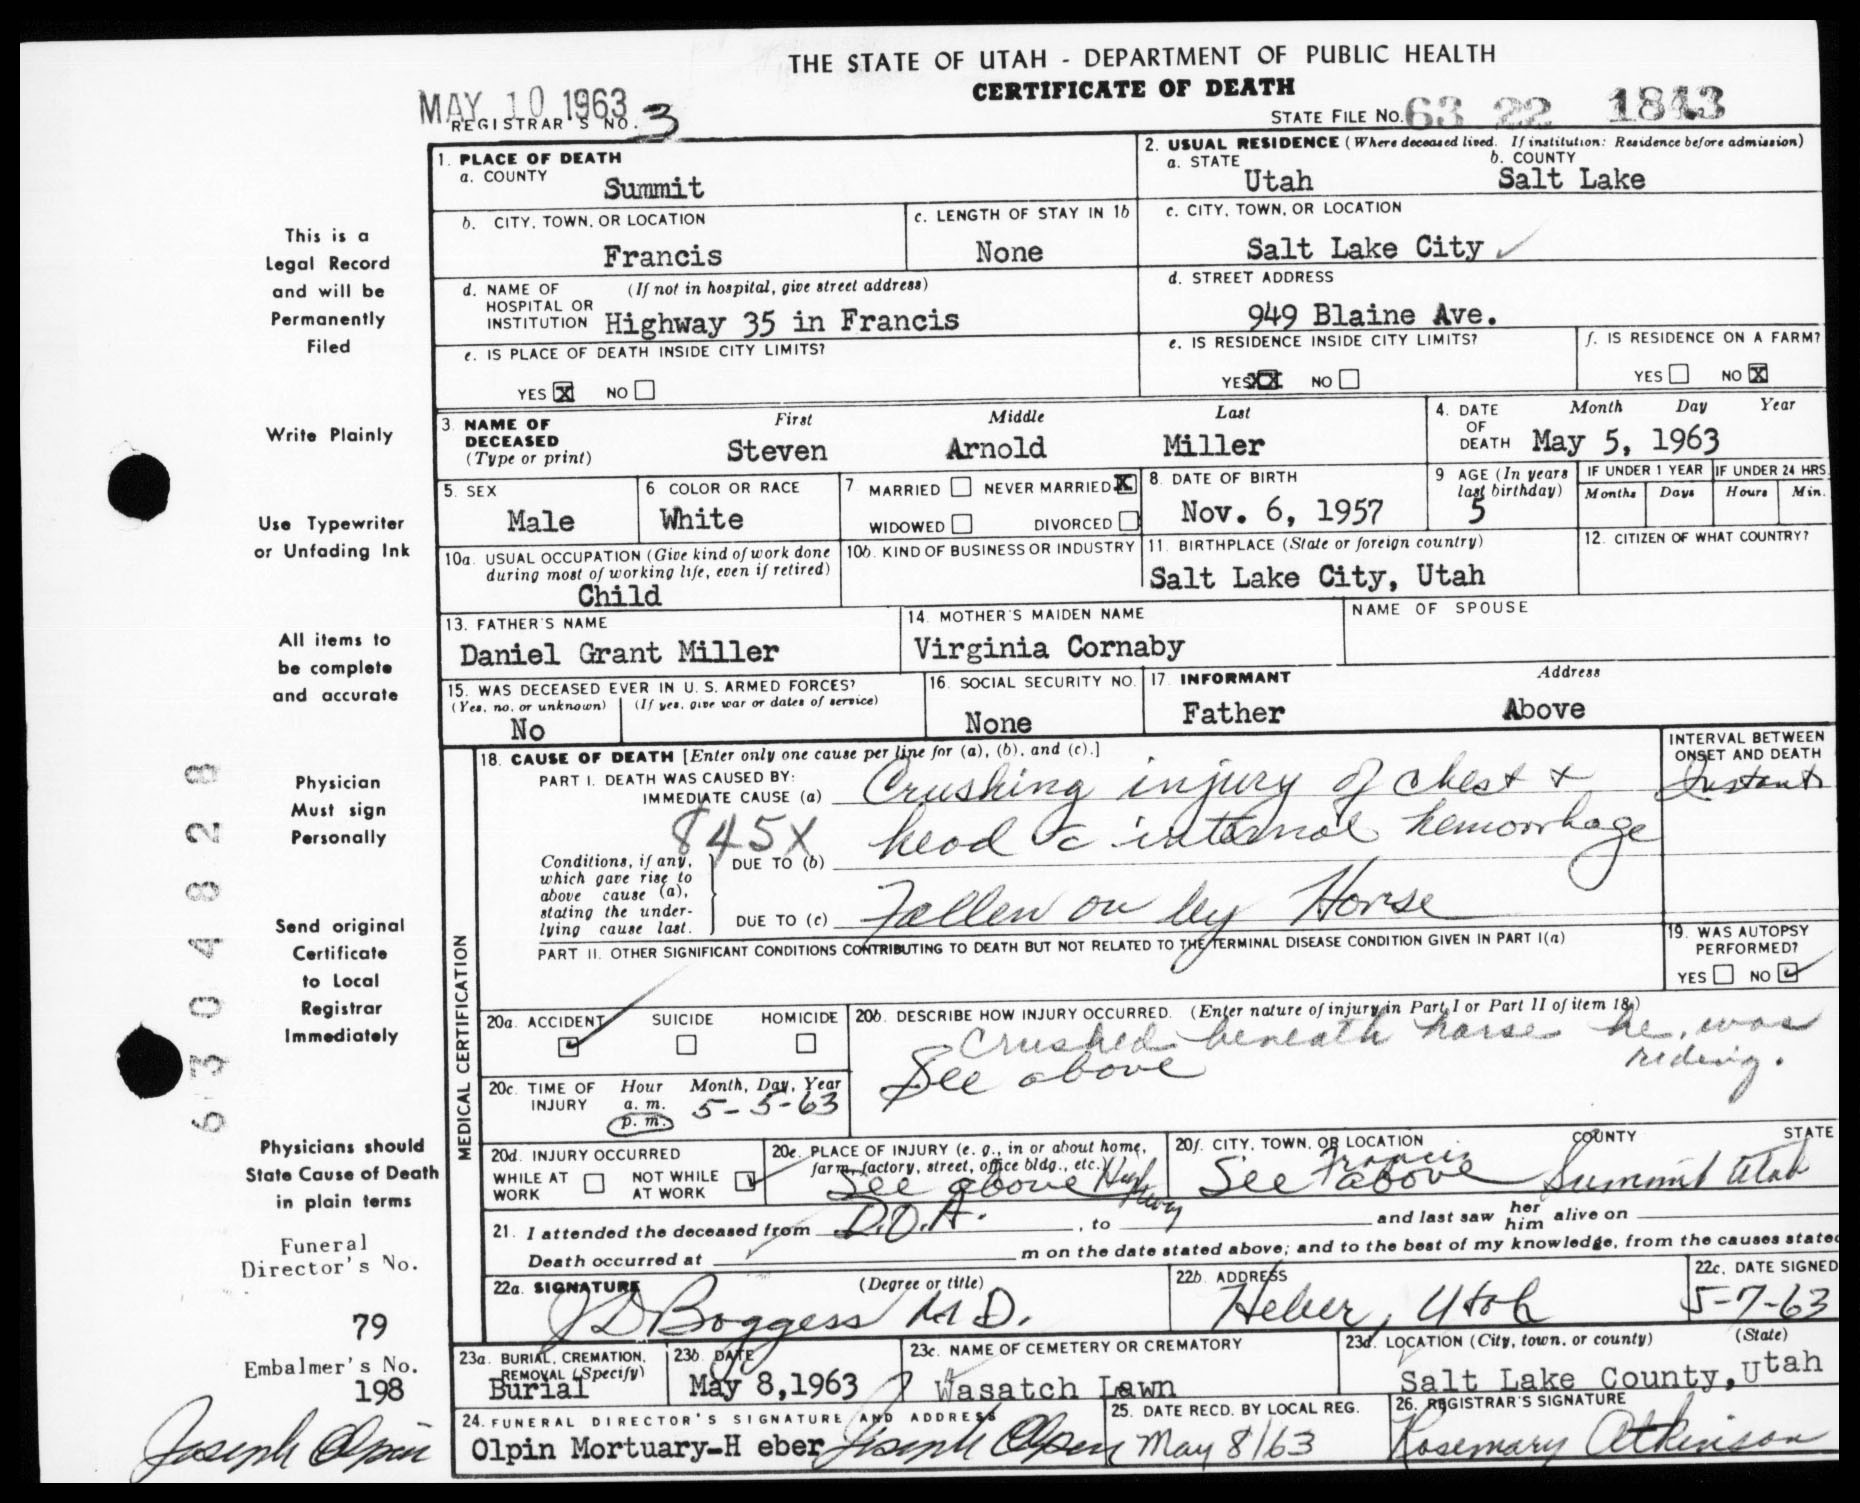 THE STATE OF UTAH - DEPARTMENT OF PUBLIC HEALTH
CERTIFICATE OF DEATH
MAY 10 1963
REGISTRAR'S NO. 3
STATE FILE NO. 63 22 1813
1. PLACE OF DEATH
a. COUNTY
Summit
2. USUAL RESIDENCE (Where deceased lived. If institution: Residence before admission)
a. STATE b. COUNTY
Utah Salt Lake
b. CITY, TOWN, OR LOCATION
Francis
c. LENGTH OF STAY IN 1b
None
c. CITY, TOWN, OR LOCATION
Salt Lake City ✓
d. NAME OF HOSPITAL OR INSTITUTION (If not in hospital, give street address)
Highway 35 in Francis
d. STREET ADDRESS
949 Blaine Ave.
e. IS PLACE OF DEATH INSIDE CITY LIMITS?
YES X NO
e. IS RESIDENCE INSIDE CITY LIMITS?
YES XX NO
f. IS RESIDENCE ON A FARM?
YES NO X
3. NAME OF DECEASED (Type or print)
First Middle Last
Steven Arnold Miller
4. DATE OF DEATH Month Day Year
May 5, 1963
5. SEX
Male
6 COLOR OR RACE
White
7 MARRIED NEVER MARRIED X
WIDOWED DIVORCED
8. DATE OF BIRTH
Nov. 6, 1957
9 AGE (In years last birthday)
5
IF UNDER 1 YEAR IF UNDER 24 HRS.
Months Days Hours Min.
10a. USUAL OCCUPATION (Give kind of work done during most of working life, even if retired)
Child
10b. KIND OF BUSINESS OR INDUSTRY
11. BIRTHPLACE (State or foreign country)
Salt Lake City, Utah
12. CITIZEN OF WHAT COUNTRY?
13. FATHER'S NAME
Daniel Grant Miller
14. MOTHER'S MAIDEN NAME
Virginia Cornaby
NAME OF SPOUSE
15. WAS DECEASED EVER IN U. S. ARMED FORCES?
(Yes, no, or unknown) (If yes, give war or dates of service)
No
16. SOCIAL SECURITY NO.
None
17. INFORMANT Address
Father Above
MEDICAL CERTIFICATION
18. CAUSE OF DEATH [Enter only one cause per line for (a), (b), and (c).]
INTERVAL BETWEEN ONSET AND DEATH
PART I. DEATH WAS CAUSED BY:
IMMEDIATE CAUSE (a) Crushing injury of chest + Instant
845X head c internal hemorrhage
Conditions, if any, which gave rise to above cause (a), stating the underlying cause last.
DUE TO (b)
DUE TO (c) Fallen on by Horse
PART II. OTHER SIGNIFICANT CONDITIONS CONTRIBUTING TO DEATH BUT NOT RELATED TO THE TERMINAL DISEASE CONDITION GIVEN IN PART I(a)
19. WAS AUTOPSY PERFORMED?
YES NO ✓
20a. ACCIDENT ✓ SUICIDE HOMICIDE
20b. DESCRIBE HOW INJURY OCCURRED. (Enter nature of injury in Part I or Part II of item 18.)
Crushed beneath horse he was riding.
See above
20c. TIME OF INJURY Hour a. m. p. m. Month, Day, Year
5-5-63
20d. INJURY OCCURRED
WHILE AT WORK NOT WHILE AT WORK ✓
20e. PLACE OF INJURY (e. g., in or about home, farm, factory, street, office bldg., etc.)
See above Highway
20f. CITY, TOWN, OR LOCATION COUNTY STATE
Francis
See above Summit Utah
21. I attended the deceased from D.O.A. , to and last saw her him alive on
Death occurred at m on the date stated above; and to the best of my knowledge, from the causes stated
22a. SIGNATURE (Degree or title)
J D Boggess M.D.
22b. ADDRESS
Heber, Utah
22c. DATE SIGNED
5-7-63
23a. BURIAL, CREMATION, REMOVAL (Specify)
Burial
23b. DATE
May 8,1963
23c. NAME OF CEMETERY OR CREMATORY
Wasatch Lawn
23d. LOCATION (City, town, or county) (State)
Salt Lake County, Utah
24. FUNERAL DIRECTOR'S SIGNATURE AND ADDRESS
Olpin Mortuary-H eber Joseph Olpin
25. DATE RECD. BY LOCAL REG.
May 8/63
26. REGISTRAR'S SIGNATURE
Rosemary Atkinson
This is a
Legal Record
and will be
Permanently
Filed
Write Plainly
Use Typewriter
or Unfading Ink
All items to
be complete
and accurate
Physician
Must sign
Personally
Send original
Certificate
to Local
Registrar
Immediately
Physicians should
State Cause of Death
in plain terms
Funeral
Director's No.
79
Embalmer's No.
198
Joseph Olpin
63 04828